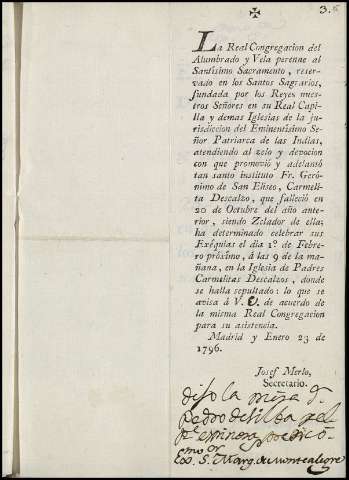 3.
La Real Congregacion del
Alumbrado y Vela perenne al
Santísimo Sacramento, reser-
vado en los Santos Sagrarios,
fundada por los Reyes nues-
tros Señores en su Real Capi-
lla y demas Iglesias de la ju-
risdiccion del Eminentísimo Se-
ñor Patriarca de las Indias,
atendiendo al zelo y devocion
con que promovió y adelantó
tan santo instituto Fr. Geró-
nimo de San Eliseo, Carmeli-
ta Descalzo, que falleció en
20 de Octubre del año ante-
rior, siendo Zelador de ella:
ha determinado celebrar sus
Exêquias el dia 1.º de Febre-
ro próximo, á las 9 de la ma-
ñana, en la Iglesia de Padres
Carmelitas Descalzos, donde
se halla sepultado: lo que se
avisa á V. E. de acuerdo de
la misma Real Congregacion
para su asistencia.
Madrid y Enero 23 de
1796.
Josef Merlo,
Secretario.
dijo la misa
Pedro de Silba
Exmo. Sr. Marq. de Montealegre